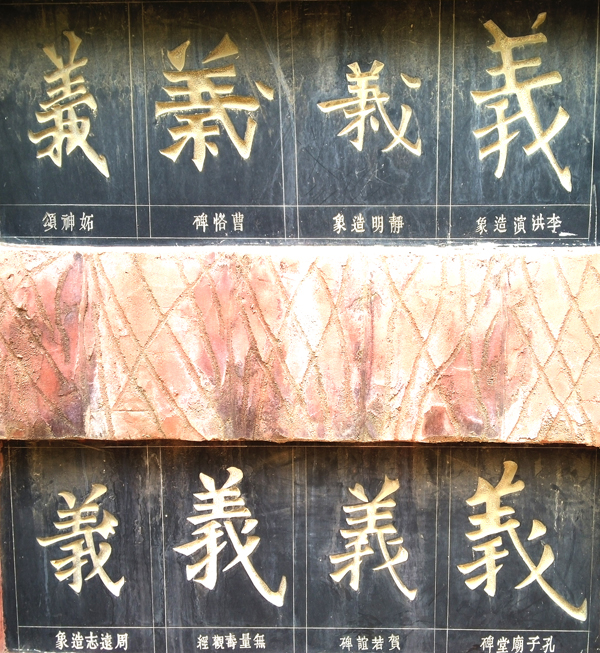 義
李洪演造象
義
靜明造象
義
曹恪碑
義
妬神頌
義
孔子廟堂碑
義
賀若誼碑
義
無量壽觀經
義
周遠志造象